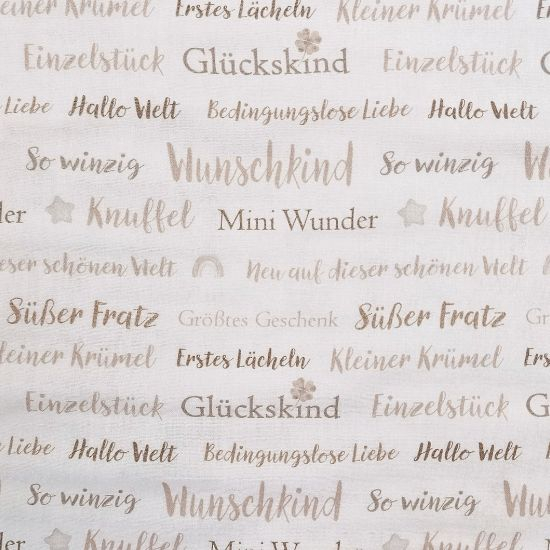 leiner Krümel Erstes Lächeln Kleiner Krümel
Einzelstück Glückskind Einzelstück G
Liebe Hallo Welt Bedingungslose Liebe Hallo Welt
So winzig Wunschkind So winzig W
der Knuffel Mini Wunder Knuffel
eser schönen Welt Neu auf dieser schönen Welt
Süßer Fratz Größtes Geschenk Süßer Fratz Gr
leiner Krümel Erstes Lächeln Kleiner Krümel Ers
Einzelstück Glückskind Einzelstück G
Liebe Hallo Welt Bedingungslose Liebe Hallo Welt
So winzig Wunschkind So winzig Wu
der Knuffel Mini Wunder Knuffel